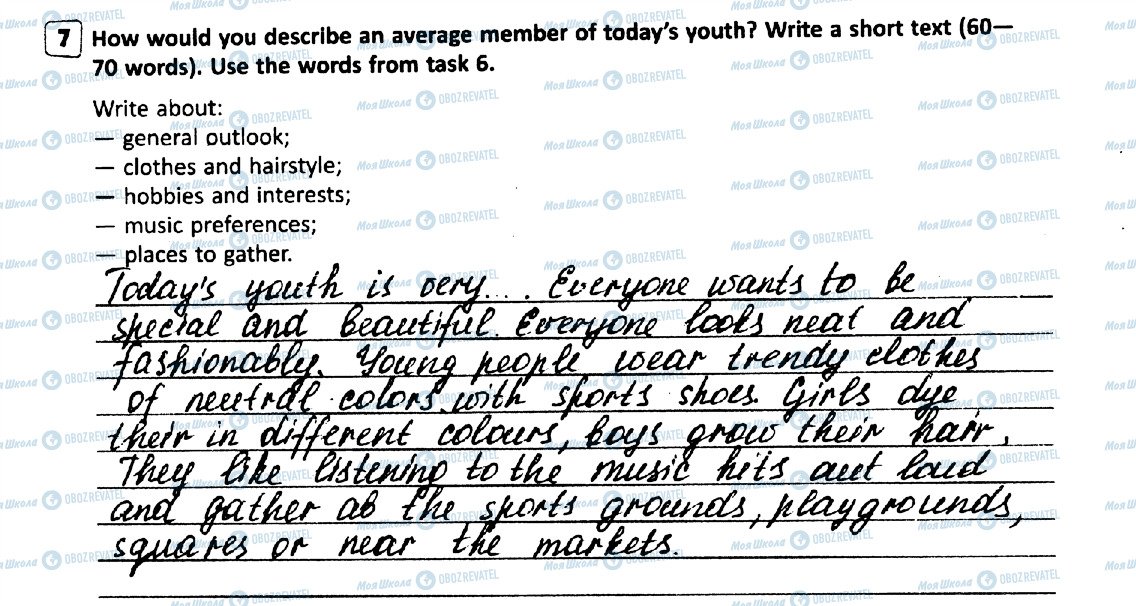 7 How would you describe an average member of today's youth? Write a short text (60—
70 words). Use the words from task 6.
Write about:
— general outlook;
— clothes and hairstyle;
— hobbies and interests;
— music preferences;
— places to gather.
Today's youth is very... . Everyone wants to be
special and beautiful. Everyone looks neat and
fashionably. Young people wear trendy clothes
of neutral colors with sports shoes. Girls dye
their in different colours, boys grow their hair.
They like listening to the music hits out loud
and gather ab the sports grounds, playgrounds,
squares or near the markets.
Моя Школа OBOZREVATEL